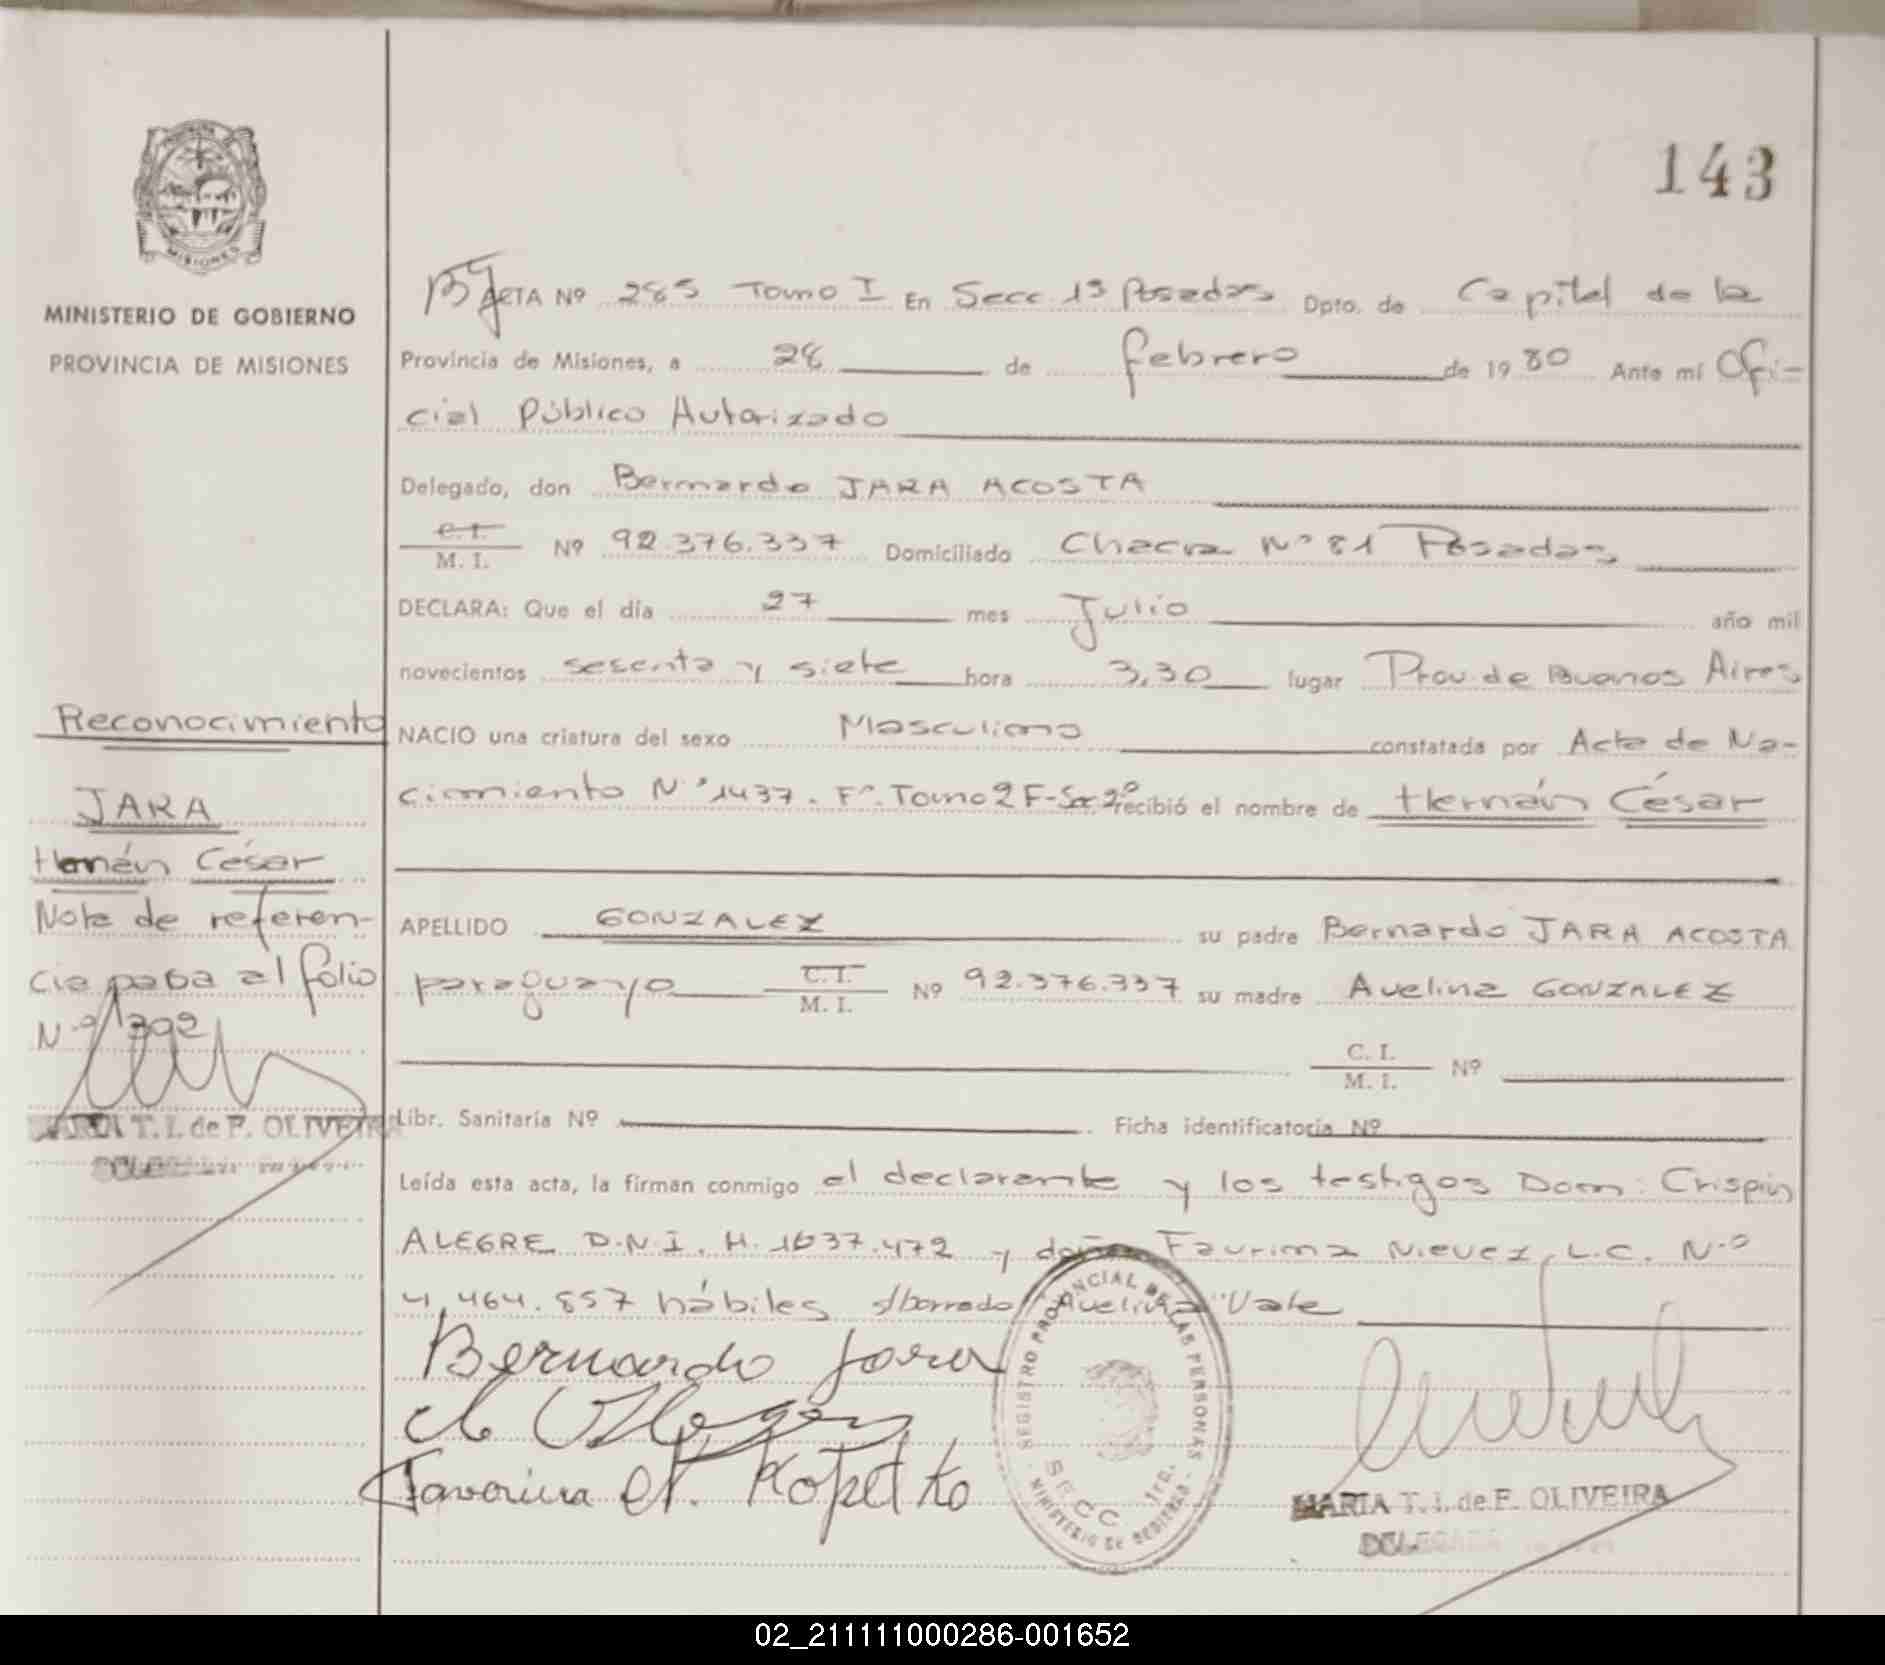 143
MISIONES
MINISTERIO DE GOBIERNO
PROVINCIA DE MISIONES
ACTA Nº 285 Tomo I En Secc 1ª Posadas Dpto. de Capital de la
Provincia de Misiones, a 28 de febrero de 1980 Ante mí Ofi-
cial Público Autorizado
Delegado, don Bernardo JARA ACOSTA
C.I. M. I. Nº 92.376.337 Domiciliado Chacra Nº 81 Posadas
DECLARA: Que el día 27 mes Julio año mil
novecientos sesenta y siete hora 3,30 lugar Prov. de Buenos Aires
NACIO una criatura del sexo Masculino constatada por Acta de Na-
cimiento Nº 1437. Fº. Tomo 2 F-Sec 2º recibió el nombre de Hernán César
APELLIDO GONZALEZ su padre Bernardo JARA ACOSTA
paraguayo C.I. M. I. Nº 92.376.337 su madre Avelina GONZALEZ
C. I. M. I. Nº
Libr. Sanitaria Nº Ficha identificatoria Nº
Leída esta acta, la firman conmigo el declarante y los testigos Don: Crispin
ALEGRE D.N.I. M. 1637.472 y doña Faurina Nievez, L.C. N.º
4.464.857 hábiles s/borrado "Avelina" Vale
Bernardo Jara
Kopetko
REGISTRO PROVINCIAL DE LAS PERSONAS
SECC 1ra.
MINISTERIO DE GOBIERNO
MARIA T. I. de F. OLIVEIRA
DELEGADA
Reconocimiento
JARA
Hernán César
Nota de referen-
cia pasa al folio
N.º 1392
MARIA T. I. de F. OLIVEIRA
02_211111000286-001652